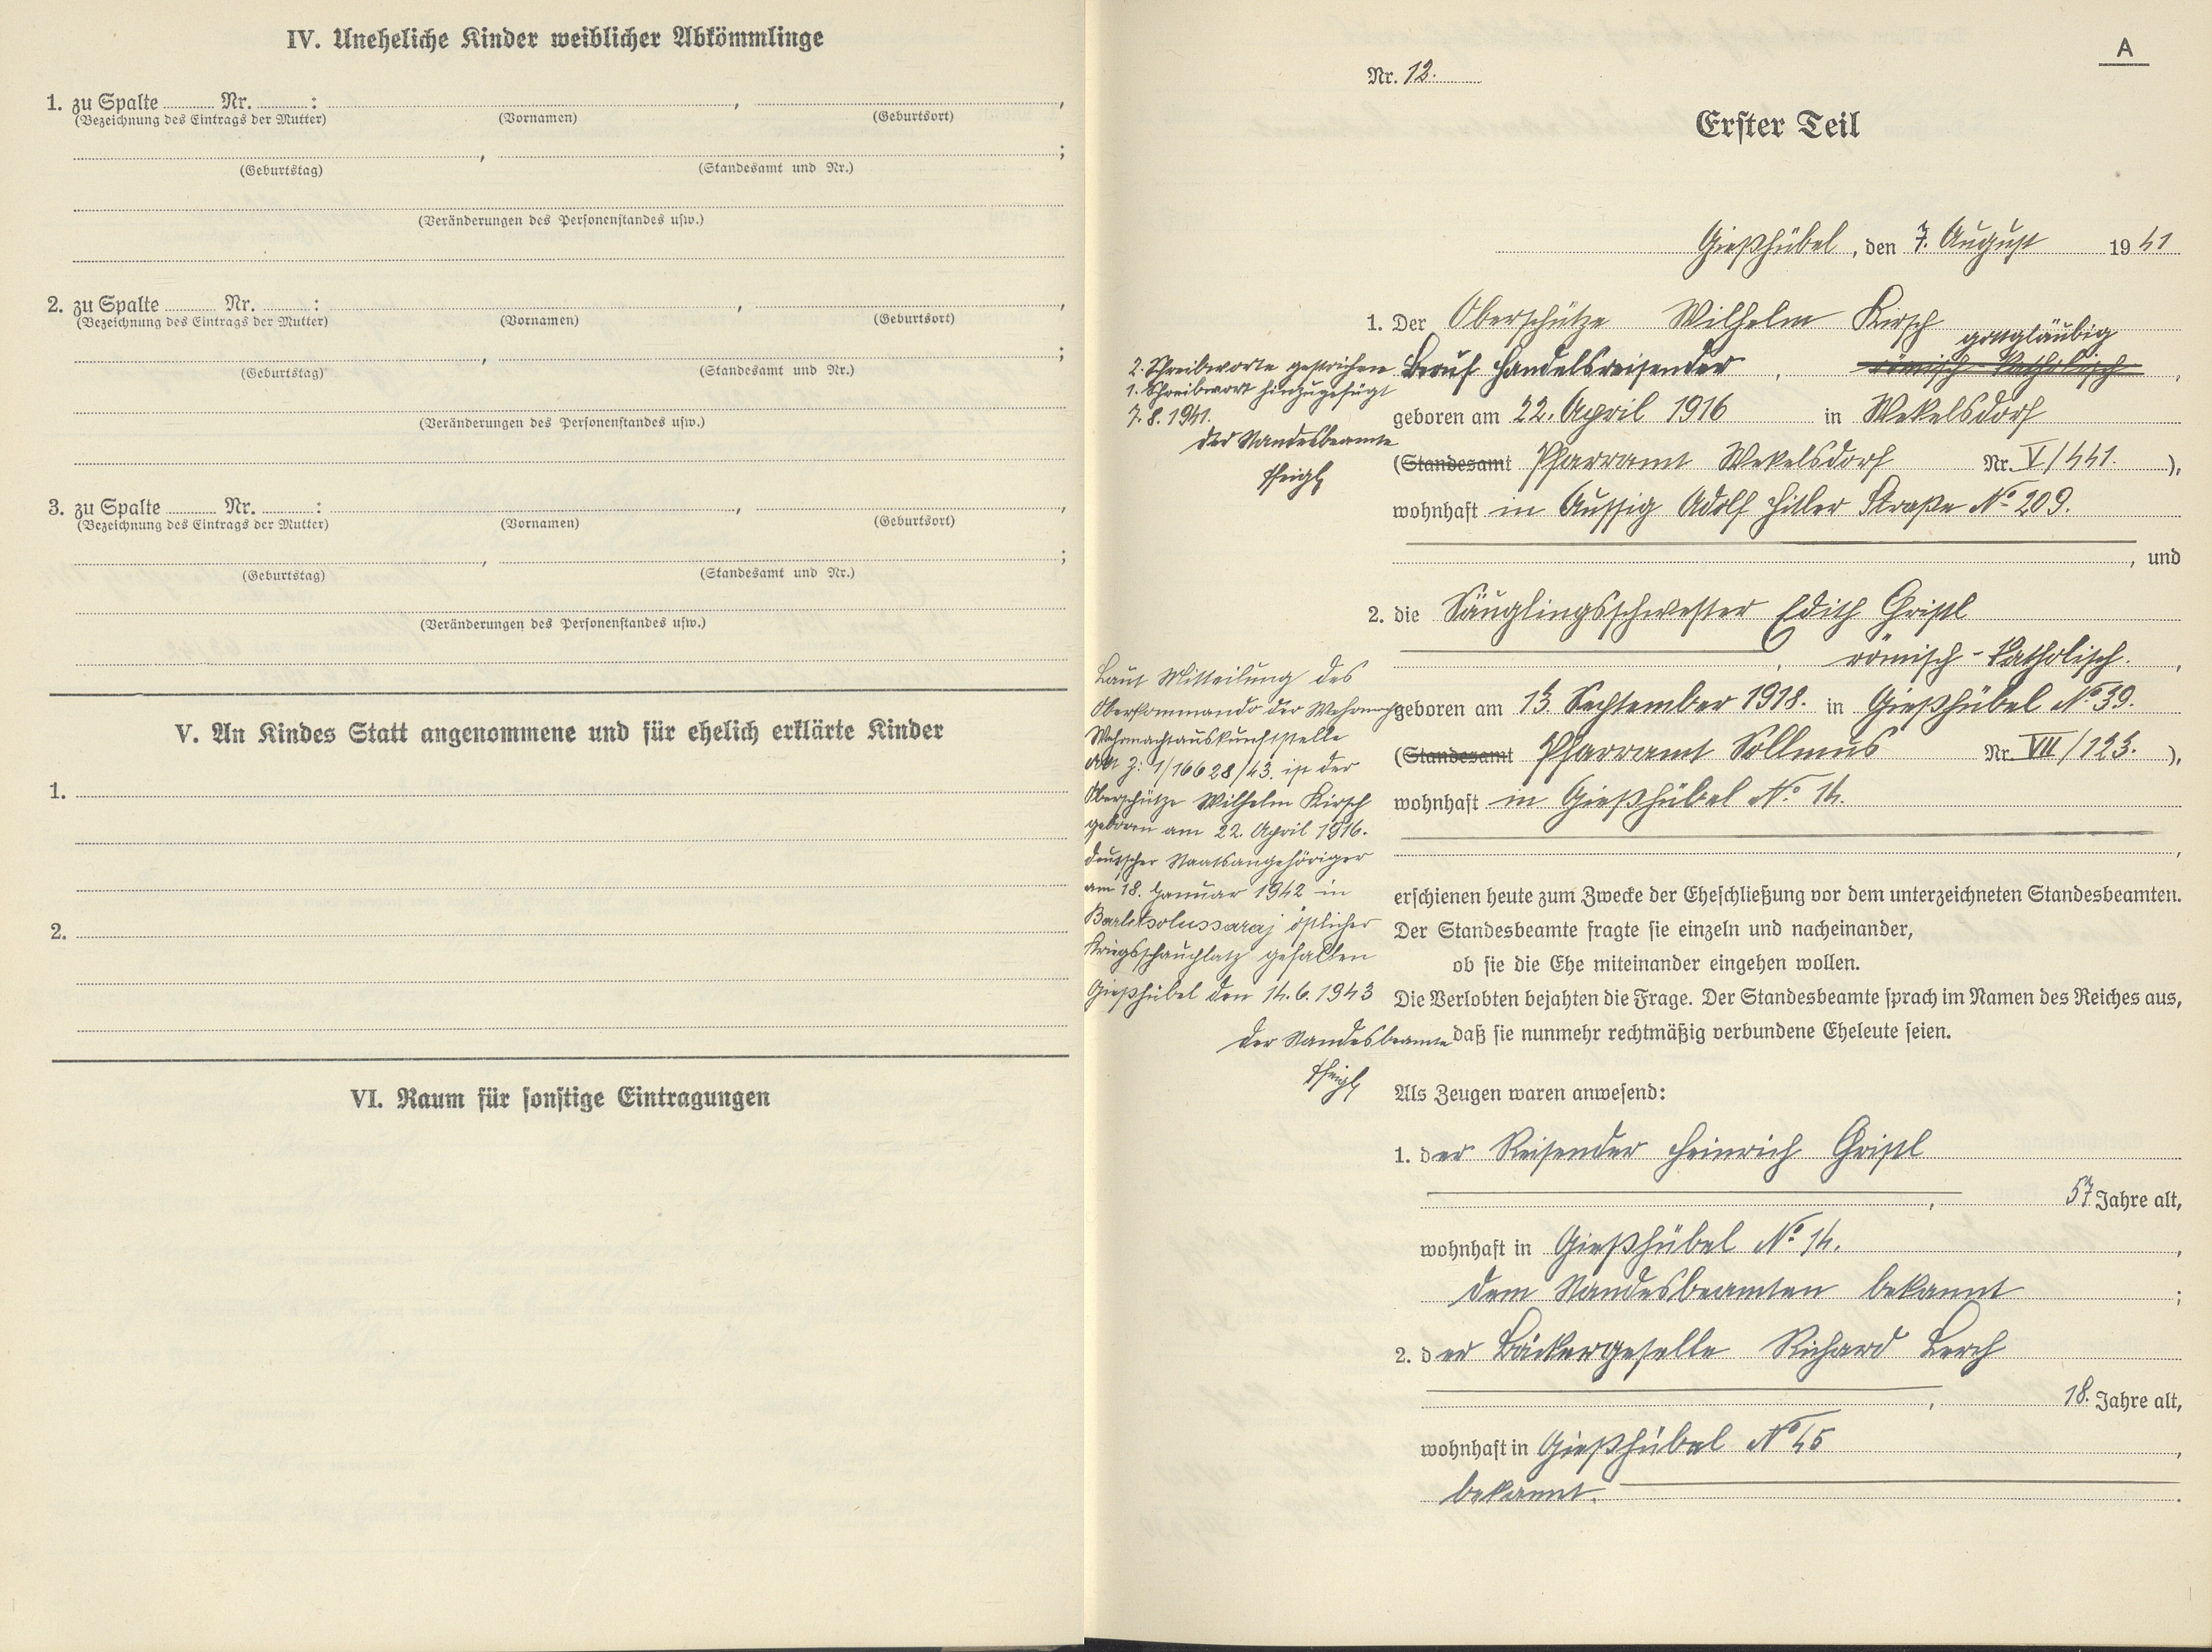 IV. Uneheliche Kinder weiblicher Abkömmlinge
1. zu Spalte Nr. : , ,
(Bezeichnung des Eintrags der Mutter) (Vornamen) (Geburtsort)
, ;
(Geburtstag) (Standesamt und Nr.)
(Veränderungen des Personenstandes usw.)
2. zu Spalte Nr. : , ,
(Bezeichnung des Eintrags der Mutter) (Vornamen) (Geburtsort)
, ;
(Geburtstag) (Standesamt und Nr.)
(Veränderungen des Personenstandes usw.)
3. zu Spalte Nr. : , ,
(Bezeichnung des Eintrags der Mutter) (Vornamen) (Geburtsort)
, ;
(Geburtstag) (Standesamt und Nr.)
(Veränderungen des Personenstandes usw.)
V. An Kindes Statt angenommene und für ehelich erklärte Kinder
1.
2.
VI. Raum für sonstige Eintragungen
A
Nr. 12.
Erster Teil
Gießhübel, den 7. August 1941
1. Der Oberschütze Wilhelm Kirsch
gottgläubig
Beruf Handelsreisender, römisch-katholisch,
2. Schreibworte gestrichen
1. Schreibwort hinzugefügt
7.8.1941.
Der Standesbeamte
geboren am 22. April 1916 in Wekelsdorf
(Standesamt Pfarramt Wekelsdorf Nr. V/441. ),
wohnhaft in Aussig Adolf Hitler Straße No 209.
, und
2. die Säuglingsschwester Edith Gristl
, römisch-katholisch. ,
geboren am 13. September 1918. in Gießhübel No 39.
(Standesamt Pfarramt Sollmus Nr. VII/123. ),
wohnhaft in Gießhübel No 14.
,
Laut Mitteilung des
Oberkommando der Wehrmacht
Wehrmachtauskunftstelle
Z: 1/16628/43. ist der
Oberschütze Wilhelm Kirsch
geboren am 22. April 1916.
deutscher Staatsangehöriger
am 18. Januar 1942 in
östlicher
Kriegsschauplatz gefallen
Gießhübel den 14.6.1943
Der Standesbeamte
erschienen heute zum Zwecke der Eheschließung vor dem unterzeichneten Standesbeamten.
Der Standesbeamte fragte sie einzeln und nacheinander,
ob sie die Ehe miteinander eingehen wollen.
Die Verlobten bejahten die Frage. Der Standesbeamte sprach im Namen des Reiches aus,
daß sie nunmehr rechtmäßig verbundene Eheleute seien.
Als Zeugen waren anwesend:
1. der Reisender Heinrich Gristl
, 57 Jahre alt,
wohnhaft in Gießhübel No 14. ,
dem Standesbeamten bekannt ;
2. der Bäckergeselle Richard Lerch
, 18. Jahre alt,
wohnhaft in Gießhübel No 45 ,
bekannt. .